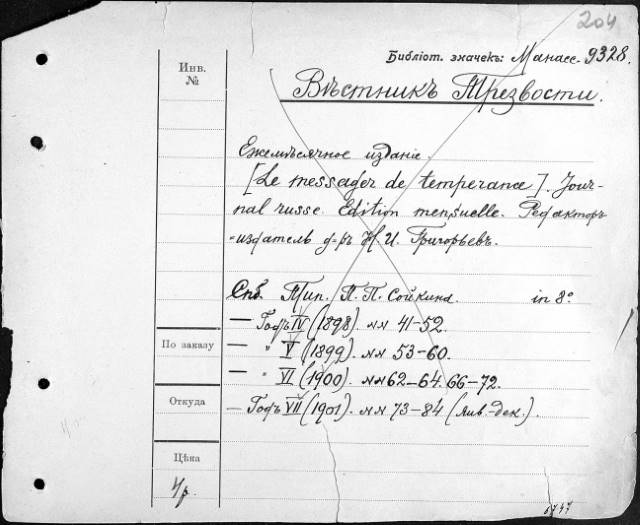 204
Библіот. значекъ: Манасс. 9328.
Инв.
№
Вѣстникъ Трезвости.
Ежемѣсячное изданіе.
[Le messager de temperance]. Jour-
nal russe. Edition mensuelle. Редакторъ
-издатель д-ръ Н. И. Григорьевъ.
Спб. Тип. П. П. Сойкина. in 8°
— Годъ IV (1898). №№ 41-52.
По заказу
— " V (1899). №№ 53-60.
— " VI (1900). №№ 62-64. 66-72.
Откуда
— Годъ VII (1901). №№ 73-84 (Янв.-дек.).
Цѣна
6747